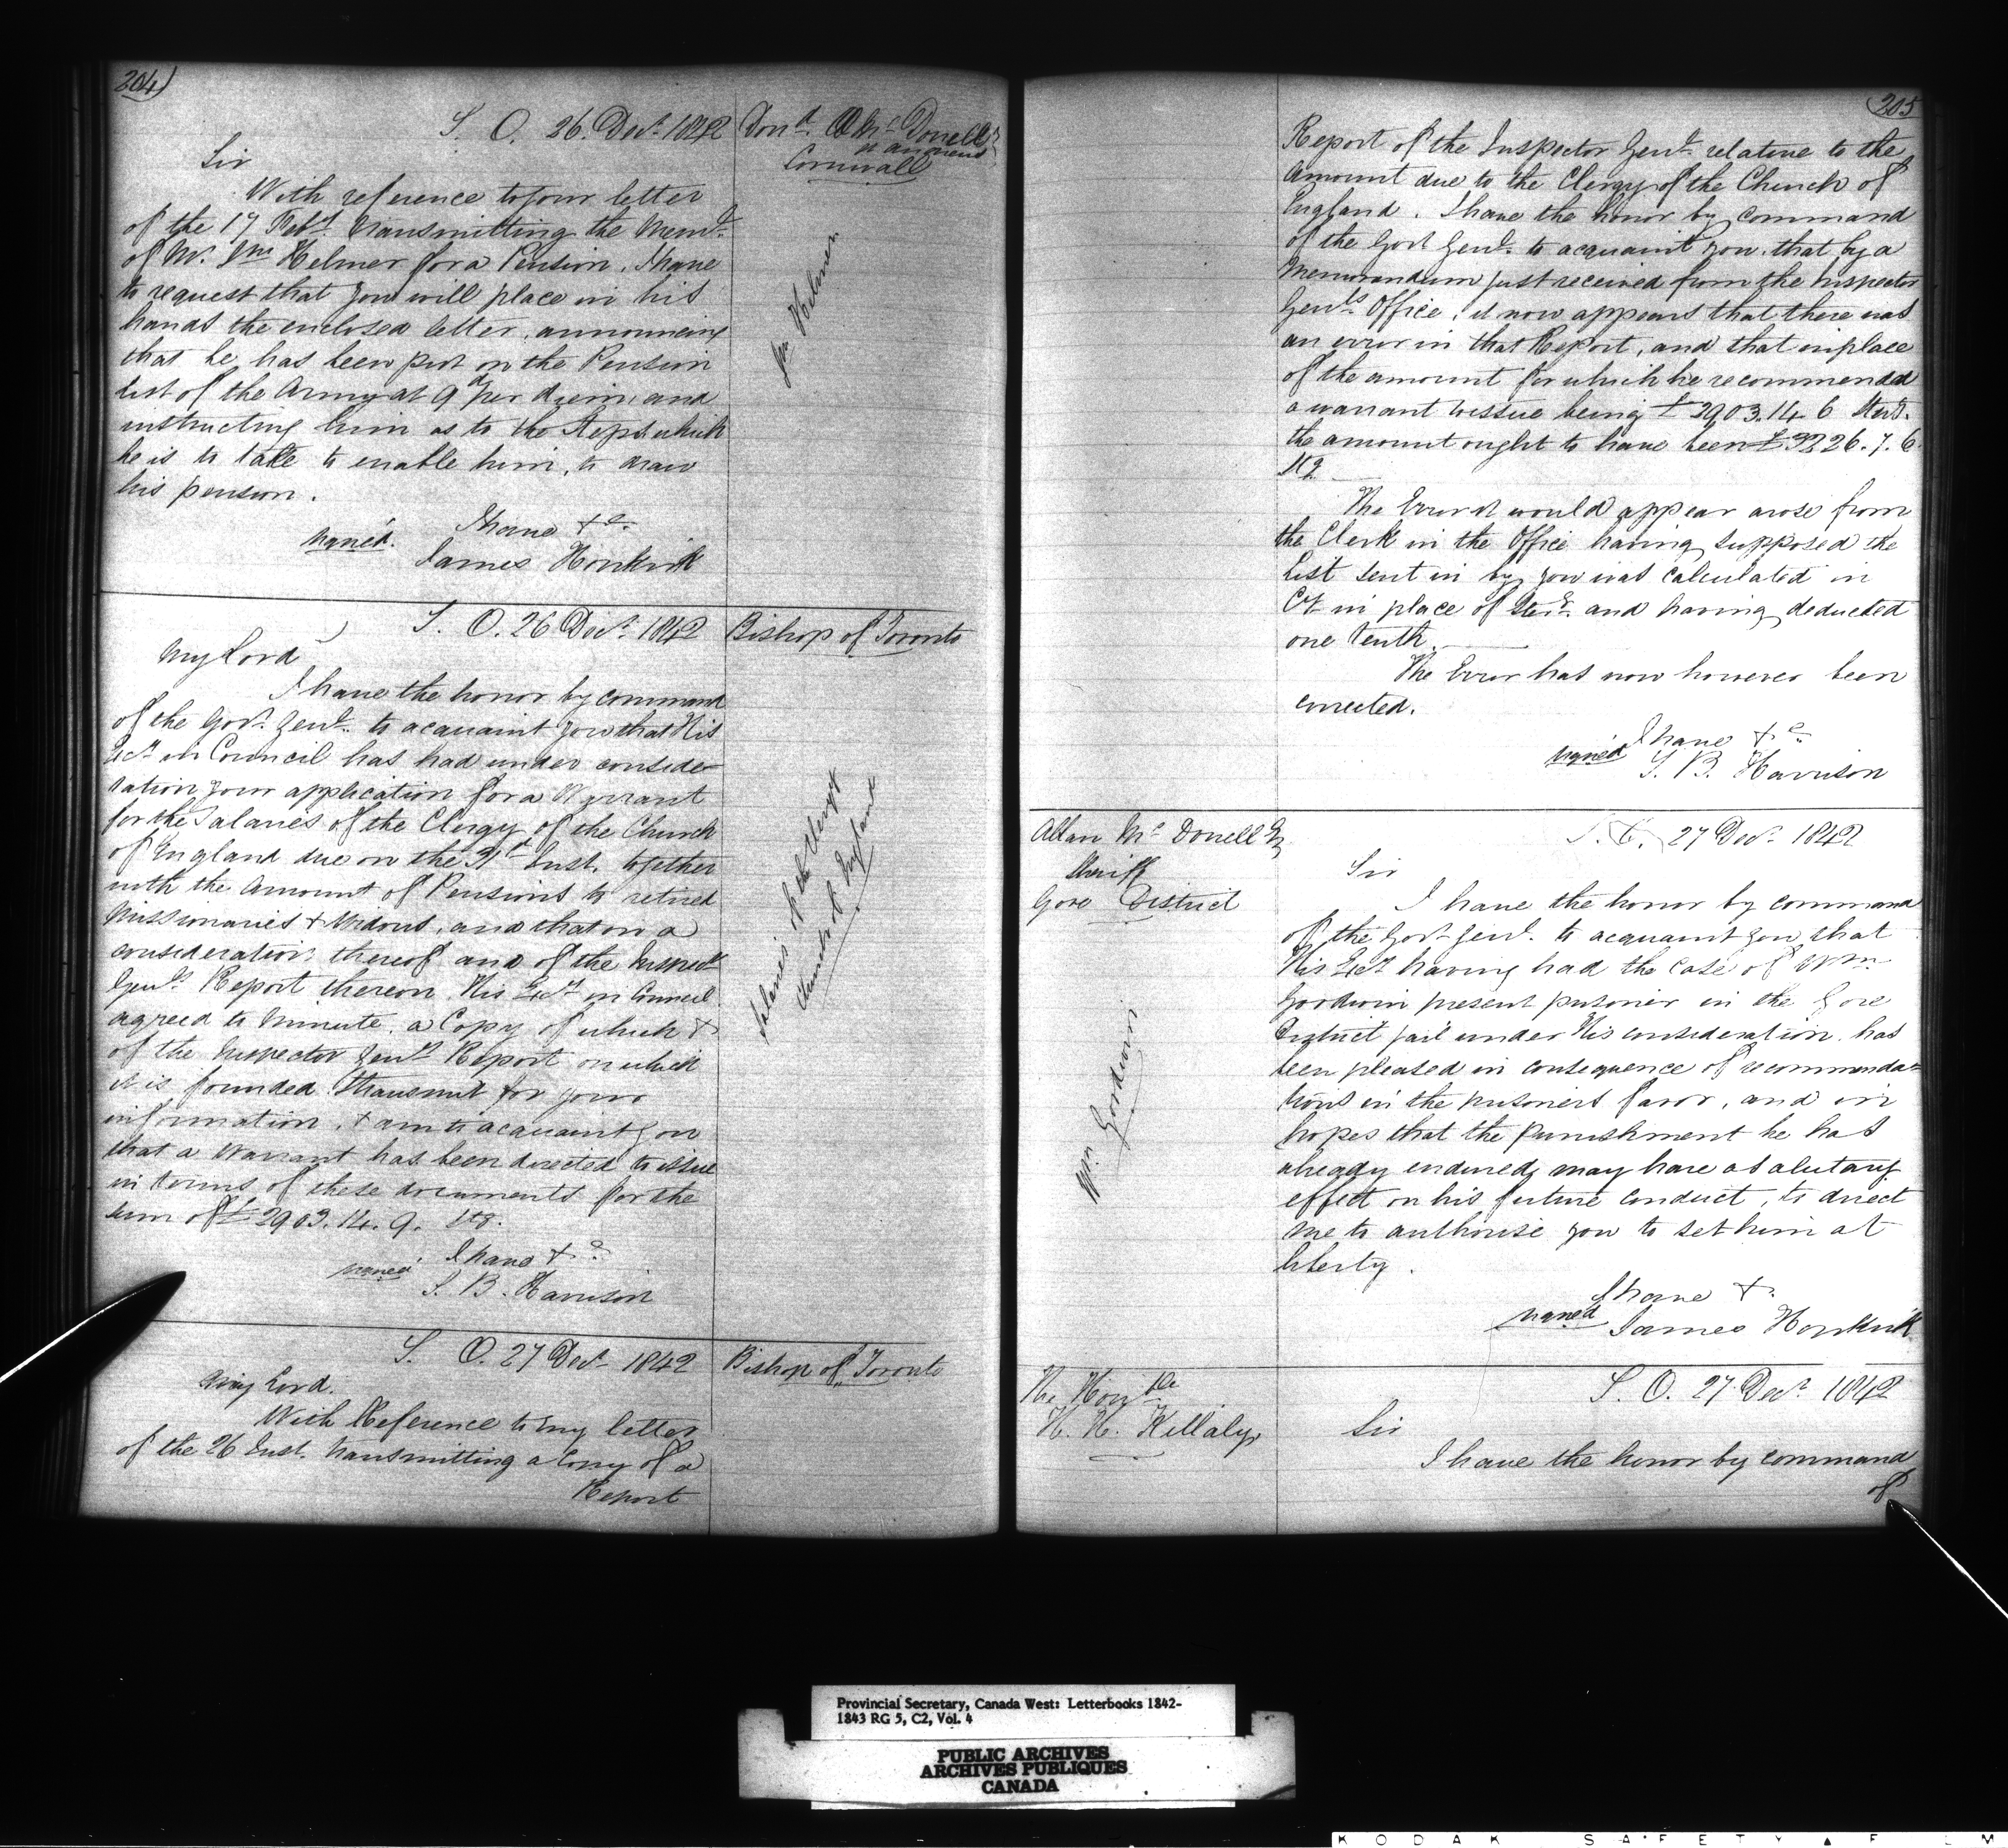 204)
S. O. 26. Decr. 1842
Dond. Æ McDonell
Cornwall
Sir
With reference to your letter
of the 17 Feby. transmitting the Meml.
of Mr. Jno Helmer for a Pension, I have
to request that you will place in his
hands the enclosed letter, announcing
that he has been put on the Pension
list of the Army at 9d per diem, and
instructing him as to the steps which
he is to take to enable him, to draw
his pension.
I have &c.
signed. James Hopkirk
Jno Helmer
S. O. 26 Decr. 1842
Bishop of Toronto
My Lord
I have the honor by command
of the Govr. Genl. to acquaint you that His
Excy in Council has had under conside-
ration your application for a Warrant
for the Salaries of the Clergy of the Church
of England due on the 31st Inst. together
with the amount of Pensions to retired
Missionaries & Widows, and that on a
consideration thereof and of the Inspectr
Genls. Report thereon His Excy in Council
agreed to Minute, a Copy of which &
of the Inspector Genls Report on which
it is founded I transmit for your
information, & am to acquaint you
that a Warrant has been directed to issue
in terms of these documents for the
sum of £2903. 14. 9. Stg.
I have &c.
signed S. B. Harrison
Salaries of the Clergy
Church of England
S. O. 27 Decr. 1842
Bishop of Toronto
My Lord.
With Reference to my letter
of the 26 Inst. transmitting a Copy of a
Report
205
Report of the Inspector Genl. relative to the
Amount due to the Clergy of the Church of
England. I have the honor by command
of the Govr Genl. to acquaint you, that by a
Memorandum just received from the Inspector
Genls. Office, it now appears that there was
an error in that Report, and that in place
of the amount for which he recommended
a warrant to issue being £2903. 14. 6 Sterg.
the amount ought to have been £3226. 7. 6.
Stg.
The Error it would appear arose from
the Clerk in the Office having supposed the
List sent in by you was calculated in
Cy in place of Sterg. and having deducted
one tenth.
The Error has now however been
corrected.
I have &c.
signed S. B. Harrison
Allan McDonell Esq
Sheriff
Gore District
S. O. 27 Decr. 1842
Sir
I have the honor by command
of the Govr Genl. to acquaint you that
His Excy having had the case of Wm.
Goodwin present prisoner in the Gore
District jail under His consideration, has
been pleased in consequence of recommenda-
tions in the prisoners favor, and in
hopes that the punishment he has
already endured, may have a salutary
effect on his future conduct, to direct
me to authorise you to set him at
liberty.
I have &.
signed James Hopkirk
Wm Goodwin
The Honble
H. H. Killaly,
S. O. 27. Decr. 1842
Sir
I have the honor by command
of
Provincial Secretary, Canada West: Letterbooks 1842-
1843 RG 5, C2, Vol. 4
PUBLIC ARCHIVES
ARCHIVES PUBLIQUES
CANADA
KODAK SAFETY